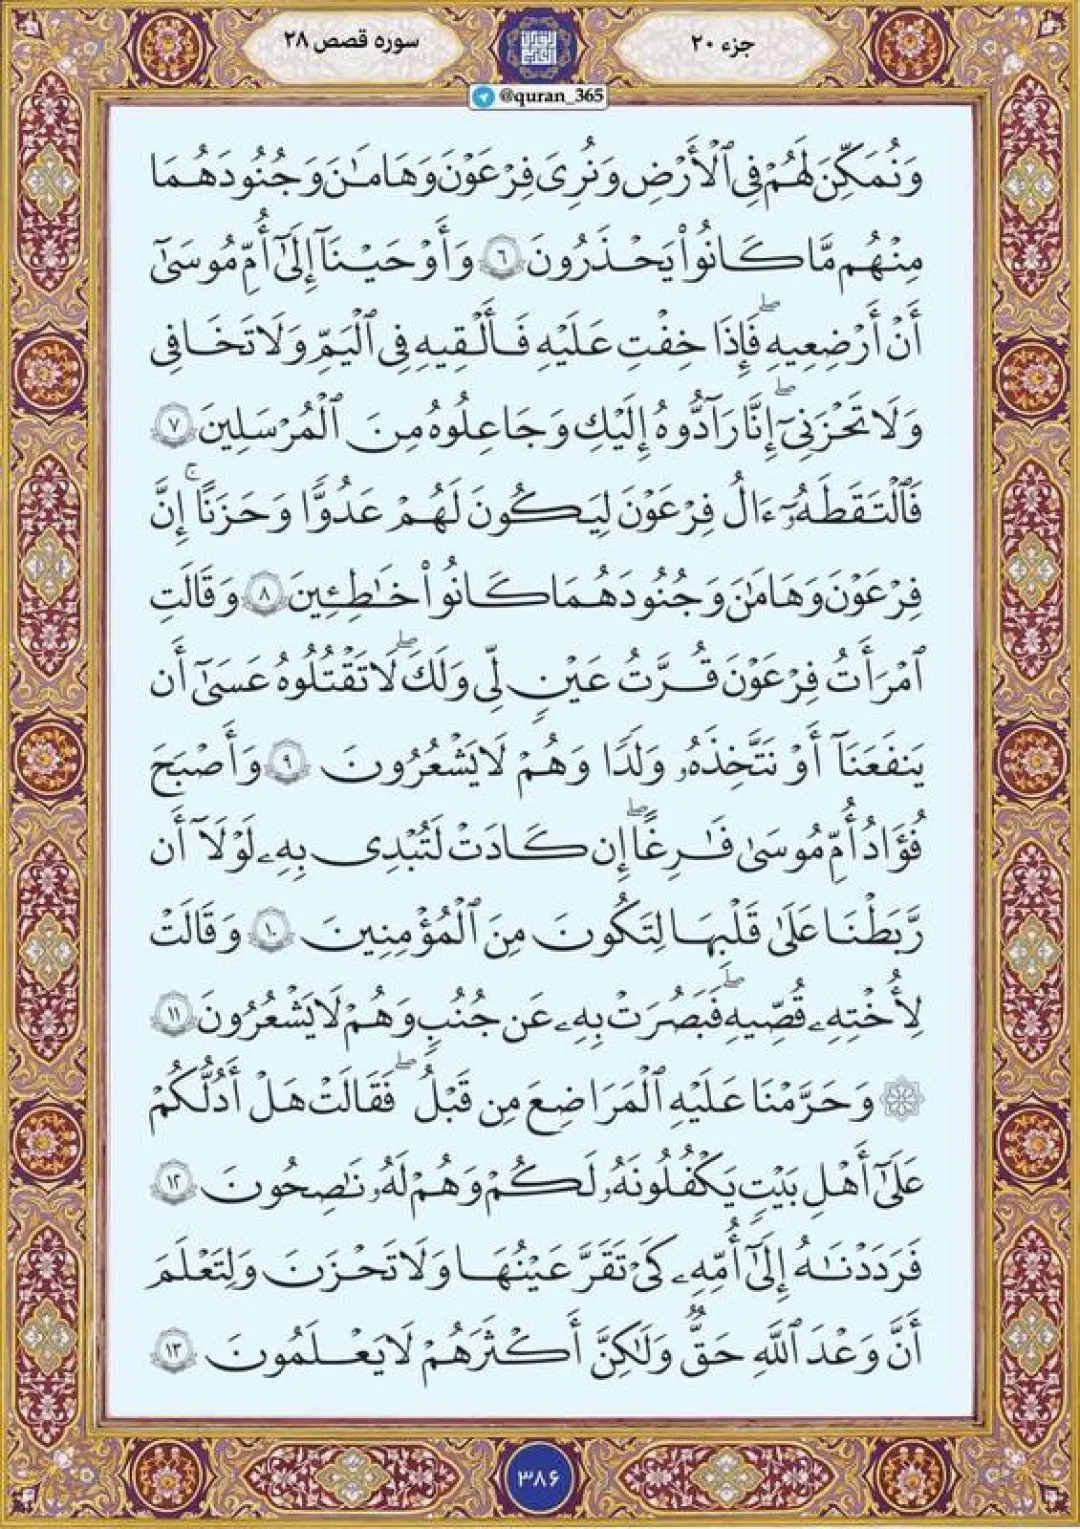 جزء ۲۰
سوره قصص ۲۸
@quran_365
وَنُمَكِّنَ لَهُمْ فِى ٱلْأَرْضِ وَنُرِىَ فِرْعَوْنَ وَهَـٰمَـٰنَ وَجُنُودَهُمَا
مِنْهُم مَّا كَانُوا۟ يَحْذَرُونَ ۶ وَأَوْحَيْنَآ إِلَىٰٓ أُمِّ مُوسَىٰٓ
أَنْ أَرْضِعِيهِ ۖ فَإِذَا خِفْتِ عَلَيْهِ فَأَلْقِيهِ فِى ٱلْيَمِّ وَلَا تَخَافِى
وَلَا تَحْزَنِىٓ ۖ إِنَّا رَآدُّوهُ إِلَيْكِ وَجَاعِلُوهُ مِنَ ٱلْمُرْسَلِينَ ۷
فَٱلْتَقَطَهُۥٓ ءَالُ فِرْعَوْنَ لِيَكُونَ لَهُمْ عَدُوًّا وَحَزَنًا ۗ إِنَّ
فِرْعَوْنَ وَهَـٰمَـٰنَ وَجُنُودَهُمَا كَانُوا۟ خَـٰطِـِٔينَ ۸ وَقَالَتِ
ٱمْرَأَتُ فِرْعَوْنَ قُرَّتُ عَيْنٍ لِّى وَلَكَ ۖ لَا تَقْتُلُوهُ عَسَىٰٓ أَن
يَنفَعَنَآ أَوْ نَتَّخِذَهُۥ وَلَدًا وَهُمْ لَا يَشْعُرُونَ ۹ وَأَصْبَحَ
فُؤَادُ أُمِّ مُوسَىٰ فَـٰرِغًا ۖ إِن كَادَتْ لَتُبْدِى بِهِۦ لَوْلَآ أَن
رَّبَطْنَا عَلَىٰ قَلْبِهَا لِتَكُونَ مِنَ ٱلْمُؤْمِنِينَ ۱۰ وَقَالَتْ
لِأُخْتِهِۦ قُصِّيهِ ۖ فَبَصُرَتْ بِهِۦ عَن جُنُبٍ وَهُمْ لَا يَشْعُرُونَ ۱۱
۞ وَحَرَّمْنَا عَلَيْهِ ٱلْمَرَاضِعَ مِن قَبْلُ ۖ فَقَالَتْ هَلْ أَدُلُّكُمْ
عَلَىٰٓ أَهْلِ بَيْتٍ يَكْفُلُونَهُۥ لَكُمْ وَهُمْ لَهُۥ نَـٰصِحُونَ ۱۲
فَرَدَدْنَـٰهُ إِلَىٰٓ أُمِّهِۦ كَىْ تَقَرَّ عَيْنُهَا وَلَا تَحْزَنَ وَلِتَعْلَمَ
أَنَّ وَعْدَ ٱللَّهِ حَقٌّ وَلَـٰكِنَّ أَكْثَرَهُمْ لَا يَعْلَمُونَ ۱۳
۳۸۶